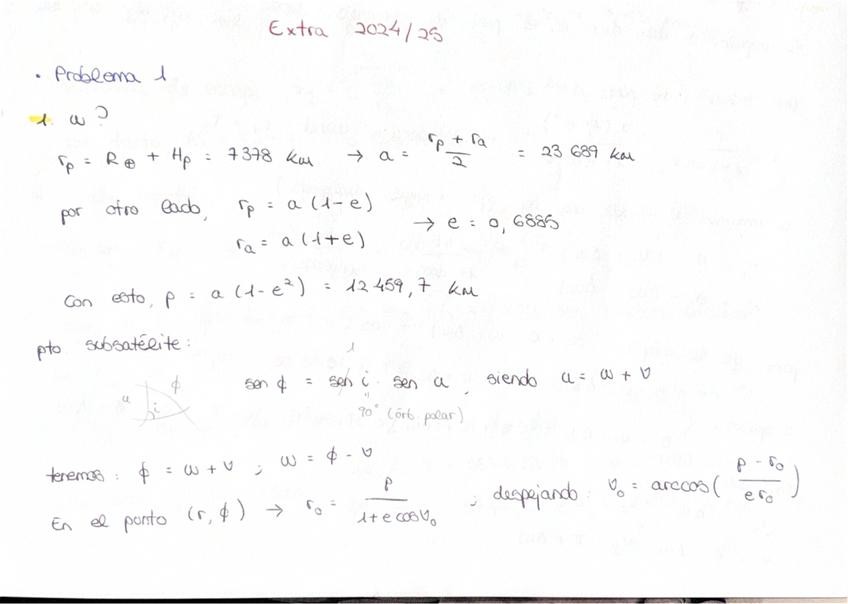 Extra 2024/25
• Problema 1
1. ω?
r_p = R_⊕ + H_p = 7378 km → a = (r_p + r_a)/2 = 23 689 km
por otro lado, r_p = a (1-e)
r_a = a (1+e) → e = 0,6885
Con esto, p = a (1-e²) = 12 459,7 km
pto subsatélite:
sen ϕ = sen i · sen u, siendo u = ω + ν
1
u i ϕ
90° (órb. polar)
tenemos: ϕ = ω + ν ; ω = ϕ - ν
En el punto (r, ϕ) → r₀ = p/(1+e cos ν₀) ; despejando: ν₀ = arccos((p - r₀)/(e r₀))